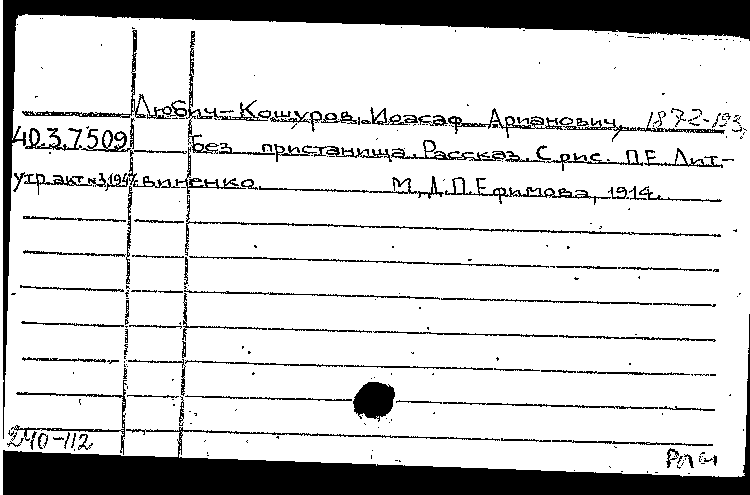 Любич-Кошуров, Иоасаф Арианович, 1872-193
40.3.7509 Без пристанища. Рассказ. С рис. П.Е. Лит-
утр. акт №3, 1947. виненко. М., Д.П. Ефимова, 1914.
240-112